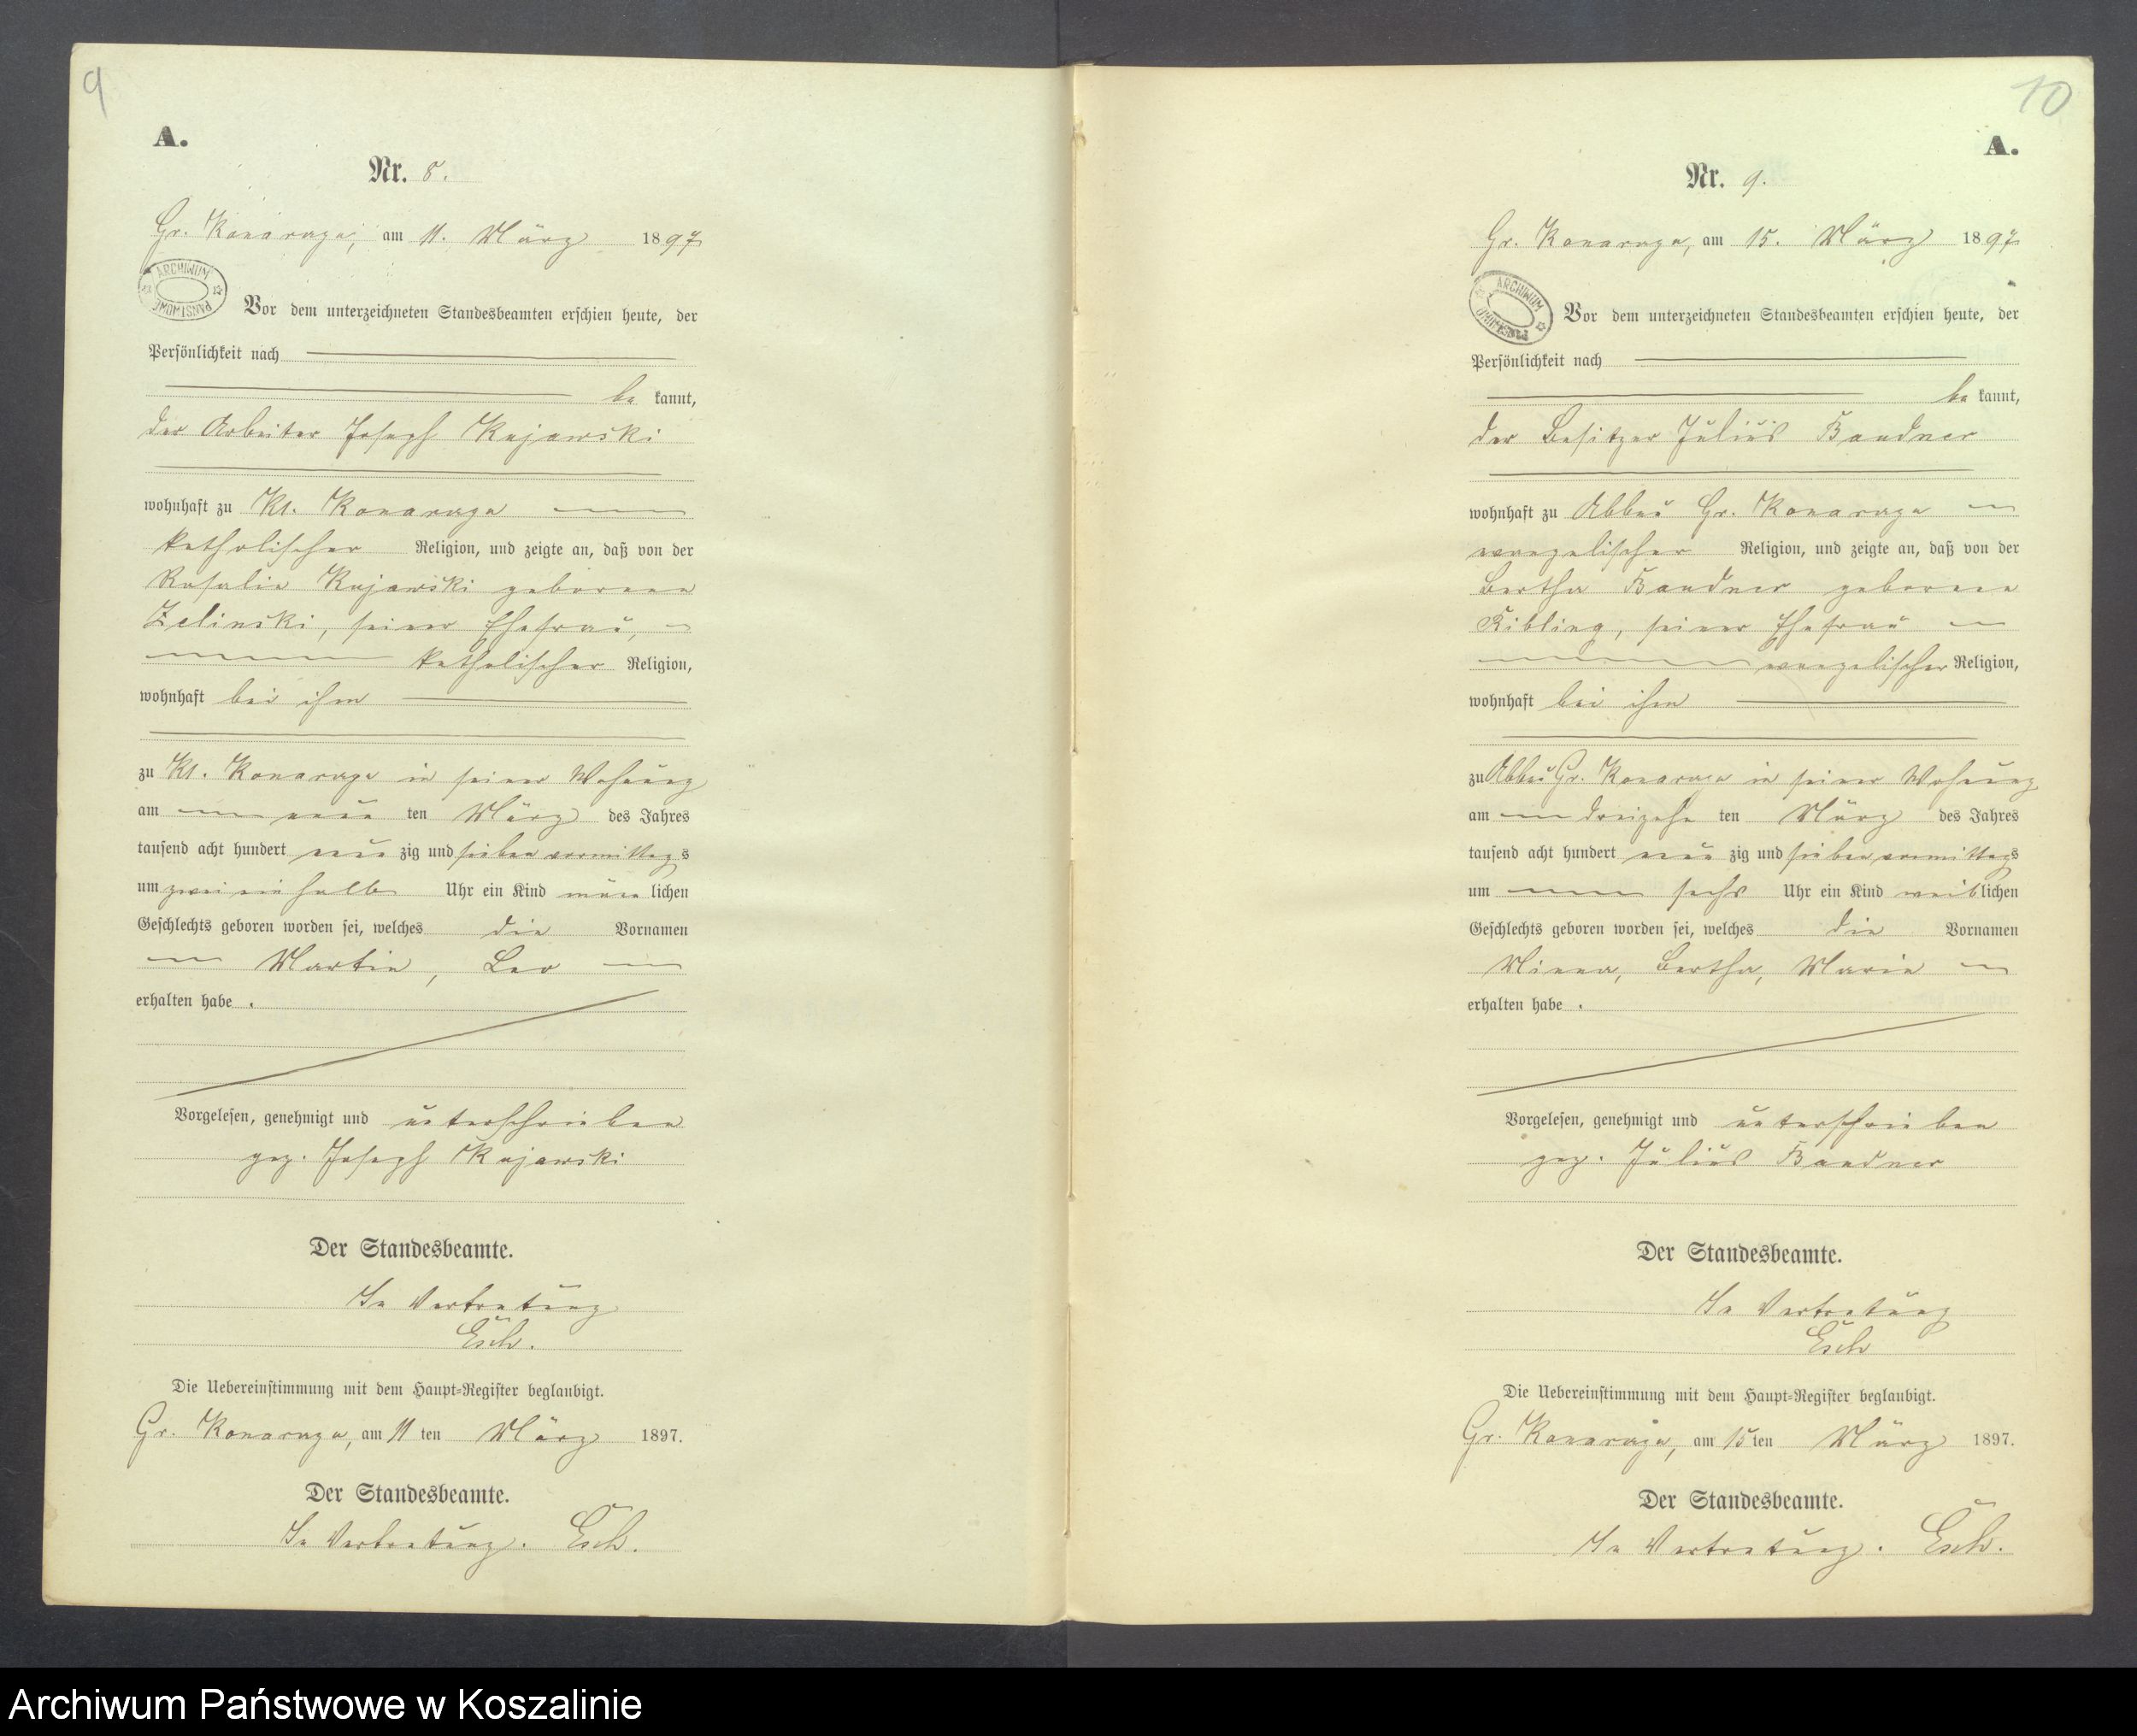 9
A.
Nr. 8.
Gr. Konarzyn, am 11. März 1897
ARCHIWUM PAŃSTWOWE
Vor dem unterzeichneten Standesbeamten erschien heute, der
Persönlichkeit nach
be kannt,
der Arbeiter Joseph Kujawski
wohnhaft zu Kl. Konarzyn
katholischer Religion, und zeigte an, daß von der
Rosalie Kujawski geborene
Zelinski, seiner Ehefrau,
katholischer Religion,
wohnhaft bei ihm
zu Kl. Konarzyn in seiner Wohnung
am neun ten März des Jahres
tausend acht hundert neun zig und sieben vormittags
um zwei ein halb Uhr ein Kind männ lichen
Geschlechts geboren worden sei, welches die Vornamen
Martin, Leo
erhalten habe.
Vorgelesen, genehmigt und unterschrieben
gez. Joseph Kujawski
Der Standesbeamte.
In Vertretung
Esch.
Die Uebereinstimmung mit dem Haupt-Register beglaubigt.
Gr. Konarzyn, am 11 ten März 1897.
Der Standesbeamte.
In Vertretung. Esch.
10
A.
Nr. 9.
Gr. Konarzyn, am 15. März 1897
ARCHIWUM PAŃSTWOWE
Vor dem unterzeichneten Standesbeamten erschien heute, der
Persönlichkeit nach
be kannt,
der Besitzer Julius Bandner
wohnhaft zu Abbau Gr. Konarzyn
evangelischer Religion, und zeigte an, daß von der
Bertha Bandner geborene
Kibling, seiner Ehefrau
evangelischer Religion,
wohnhaft bei ihm
zu Abbau Gr. Konarzyn in seiner Wohnung
am dreizehn ten März des Jahres
tausend acht hundert neun zig und sieben vormittags
um sechs Uhr ein Kind weiblichen
Geschlechts geboren worden sei, welches die Vornamen
Minna, Bertha, Marie
erhalten habe.
Vorgelesen, genehmigt und unterschrieben
gez. Julius Bandner
Der Standesbeamte.
In Vertretung
Esch
Die Uebereinstimmung mit dem Haupt-Register beglaubigt.
Gr. Konarzyn, am 15 ten März 1897.
Der Standesbeamte.
In Vertretung. Esch.
Archiwum Państwowe w Koszalinie